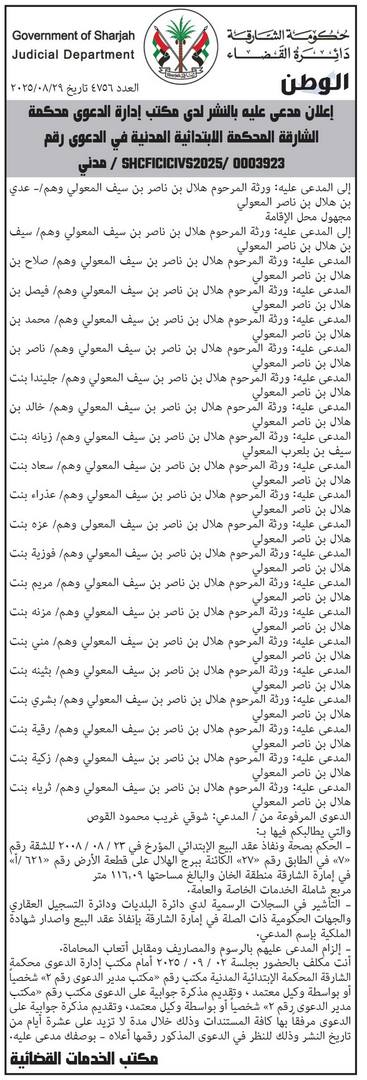 Government of Sharjah
Judicial Department
حكومة الشارقة
دائرة القضاء
الوطن
العدد ٤٧٥٦ تاريخ ٢٠٢٥/٠٨/٢٩
إعلان مدعى عليه بالنشر لدى مكتب إدارة الدعوى محكمة
الشارقة المحكمة الابتدائية المدنية في الدعوى رقم
SHCFICICIVS2025/ 0003923 / مدني
إلى المدعى عليه: ورثة المرحوم هلال بن ناصر بن سيف المعولي وهم/- عدي
بن هلال بن ناصر المعولي
مجهول محل الإقامة
إلى المدعى عليه: ورثة المرحوم هلال بن ناصر بن سيف المعولي وهم/ سيف
بن هلال بن ناصر المعولي
المدعى عليه: ورثة المرحوم هلال بن ناصر بن سيف المعولي وهم/ صلاح بن
هلال بن ناصر المعولي
المدعى عليه: ورثة المرحوم هلال بن ناصر بن سيف المعولي وهم/ فيصل بن
هلال بن ناصر المعولي
المدعى عليه: ورثة المرحوم هلال بن ناصر بن سيف المعولي وهم/ محمد بن
هلال بن ناصر المعولي
المدعى عليه: ورثة المرحوم هلال بن ناصر بن سيف المعولي وهم/ ناصر بن
هلال بن ناصر المعولي
المدعى عليه: ورثة المرحوم هلال بن ناصر بن سيف المعولي وهم/ جليندا بنت
هلال بن ناصر المعولي
المدعى عليه: ورثة المرحوم هلال بن ناصر بن سيف المعولي وهم/ خالد بن
هلال بن ناصر المعولي
المدعى عليه: ورثة المرحوم هلال بن ناصر بن سيف المعولي وهم/ زيانه بنت
سيف بن بلعرب المعولي
المدعى عليه: ورثة المرحوم هلال بن ناصر بن سيف المعولي وهم/ سعاد بنت
هلال بن ناصر المعولي
المدعى عليه: ورثة المرحوم هلال بن ناصر بن سيف المعولي وهم/ عذراء بنت
هلال بن ناصر المعولي
المدعى عليه: ورثة المرحوم هلال بن ناصر بن سيف المعولى وهم/ عزه بنت
هلال بن ناصر المعولي
المدعى عليه: ورثة المرحوم هلال بن ناصر بن سيف المعولي وهم/ فوزية بنت
هلال بن ناصر المعولي
المدعى عليه: ورثة المرحوم هلال بن ناصر بن سيف المعولي وهم/ مريم بنت
هلال بن ناصر المعولي
المدعى عليه: ورثة المرحوم هلال بن ناصر بن سيف المعولي وهم/ مزنه بنت
هلال بن ناصر المعولي
المدعى عليه: ورثة المرحوم هلال بن ناصر بن سيف المعولي وهم/ مني بنت
هلال بن ناصر المعولي
المدعى عليه: ورثة المرحوم هلال بن ناصر بن سيف المعولي وهم/ بثينه بنت
هلال بن ناصر المعولي
المدعى عليه: ورثة المرحوم هلال بن ناصر بن سيف المعولي وهم/ بشري بنت
هلال بن ناصر المعولي
المدعى عليه: ورثة المرحوم هلال بن ناصر بن سيف المعولي وهم/ رقية بنت
هلال بن ناصر المعولي
المدعى عليه: ورثة المرحوم هلال بن ناصر بن سيف المعولي وهم/ زكية بنت
هلال بن ناصر المعولي
المدعى عليه: ورثة المرحوم هلال بن ناصر بن سيف المعولي وهم/ ثرياء بنت
هلال بن ناصر المعولي
الدعوى المرفوعة من / المدعي: شوقي غريب محمود القوص
والتي يطالبكم فيها بـ:
- الحكم بصحة ونفاذ عقد البيع الإبتدائي المؤرخ في ٢٣ / ٠٨ / ٢٠٠٨ للشقة رقم
«٧» في الطابق رقم «٢٧» الكائنة ببرج الهلال على قطعة الأرض رقم «٦٢١ /أ»
في إمارة الشارقة منطقة الخان والبالغ مساحتها ١١٦,٠٩ متر
مربع شاملة الخدمات الخاصة والعامة.
- التأشير في السجلات الرسمية لدي دائرة البلديات ودائرة التسجيل العقاري
والجهات الحكومية ذات الصلة في إمارة الشارقة بإنفاذ عقد البيع واصدار شهادة
الملكية بإسم المدعي.
- إلزام المدعى عليهم بالرسوم والمصاريف ومقابل أتعاب المحاماة.
أنت مكلف بالحضور بجلسة ٠٢ / ٠٩ / ٢٠٢٥ أمام مكتب إدارة الدعوى محكمة
الشارقة المحكمة الإبتدائية المدنية مكتب رقم «مكتب مدير الدعوى رقم ٢» شخصياً
أو بواسطة وكيل معتمد ، وتقديم مذكرة جوابية على الدعوى مكتب رقم «مكتب
مدير الدعوى رقم ٢» شخصياً أو بواسطة وكيل معتمد، وتقديم مذكرة جوابية على
الدعوى مرفقا بها كافة المستندات وذلك خلال مدة لا تزيد على عشرة أيام من
تاريخ النشر وذلك للنظر في الدعوى المذكور رقمها أعلاه - بوصفك مدعى عليه.
مكتب الخدمات القضائية